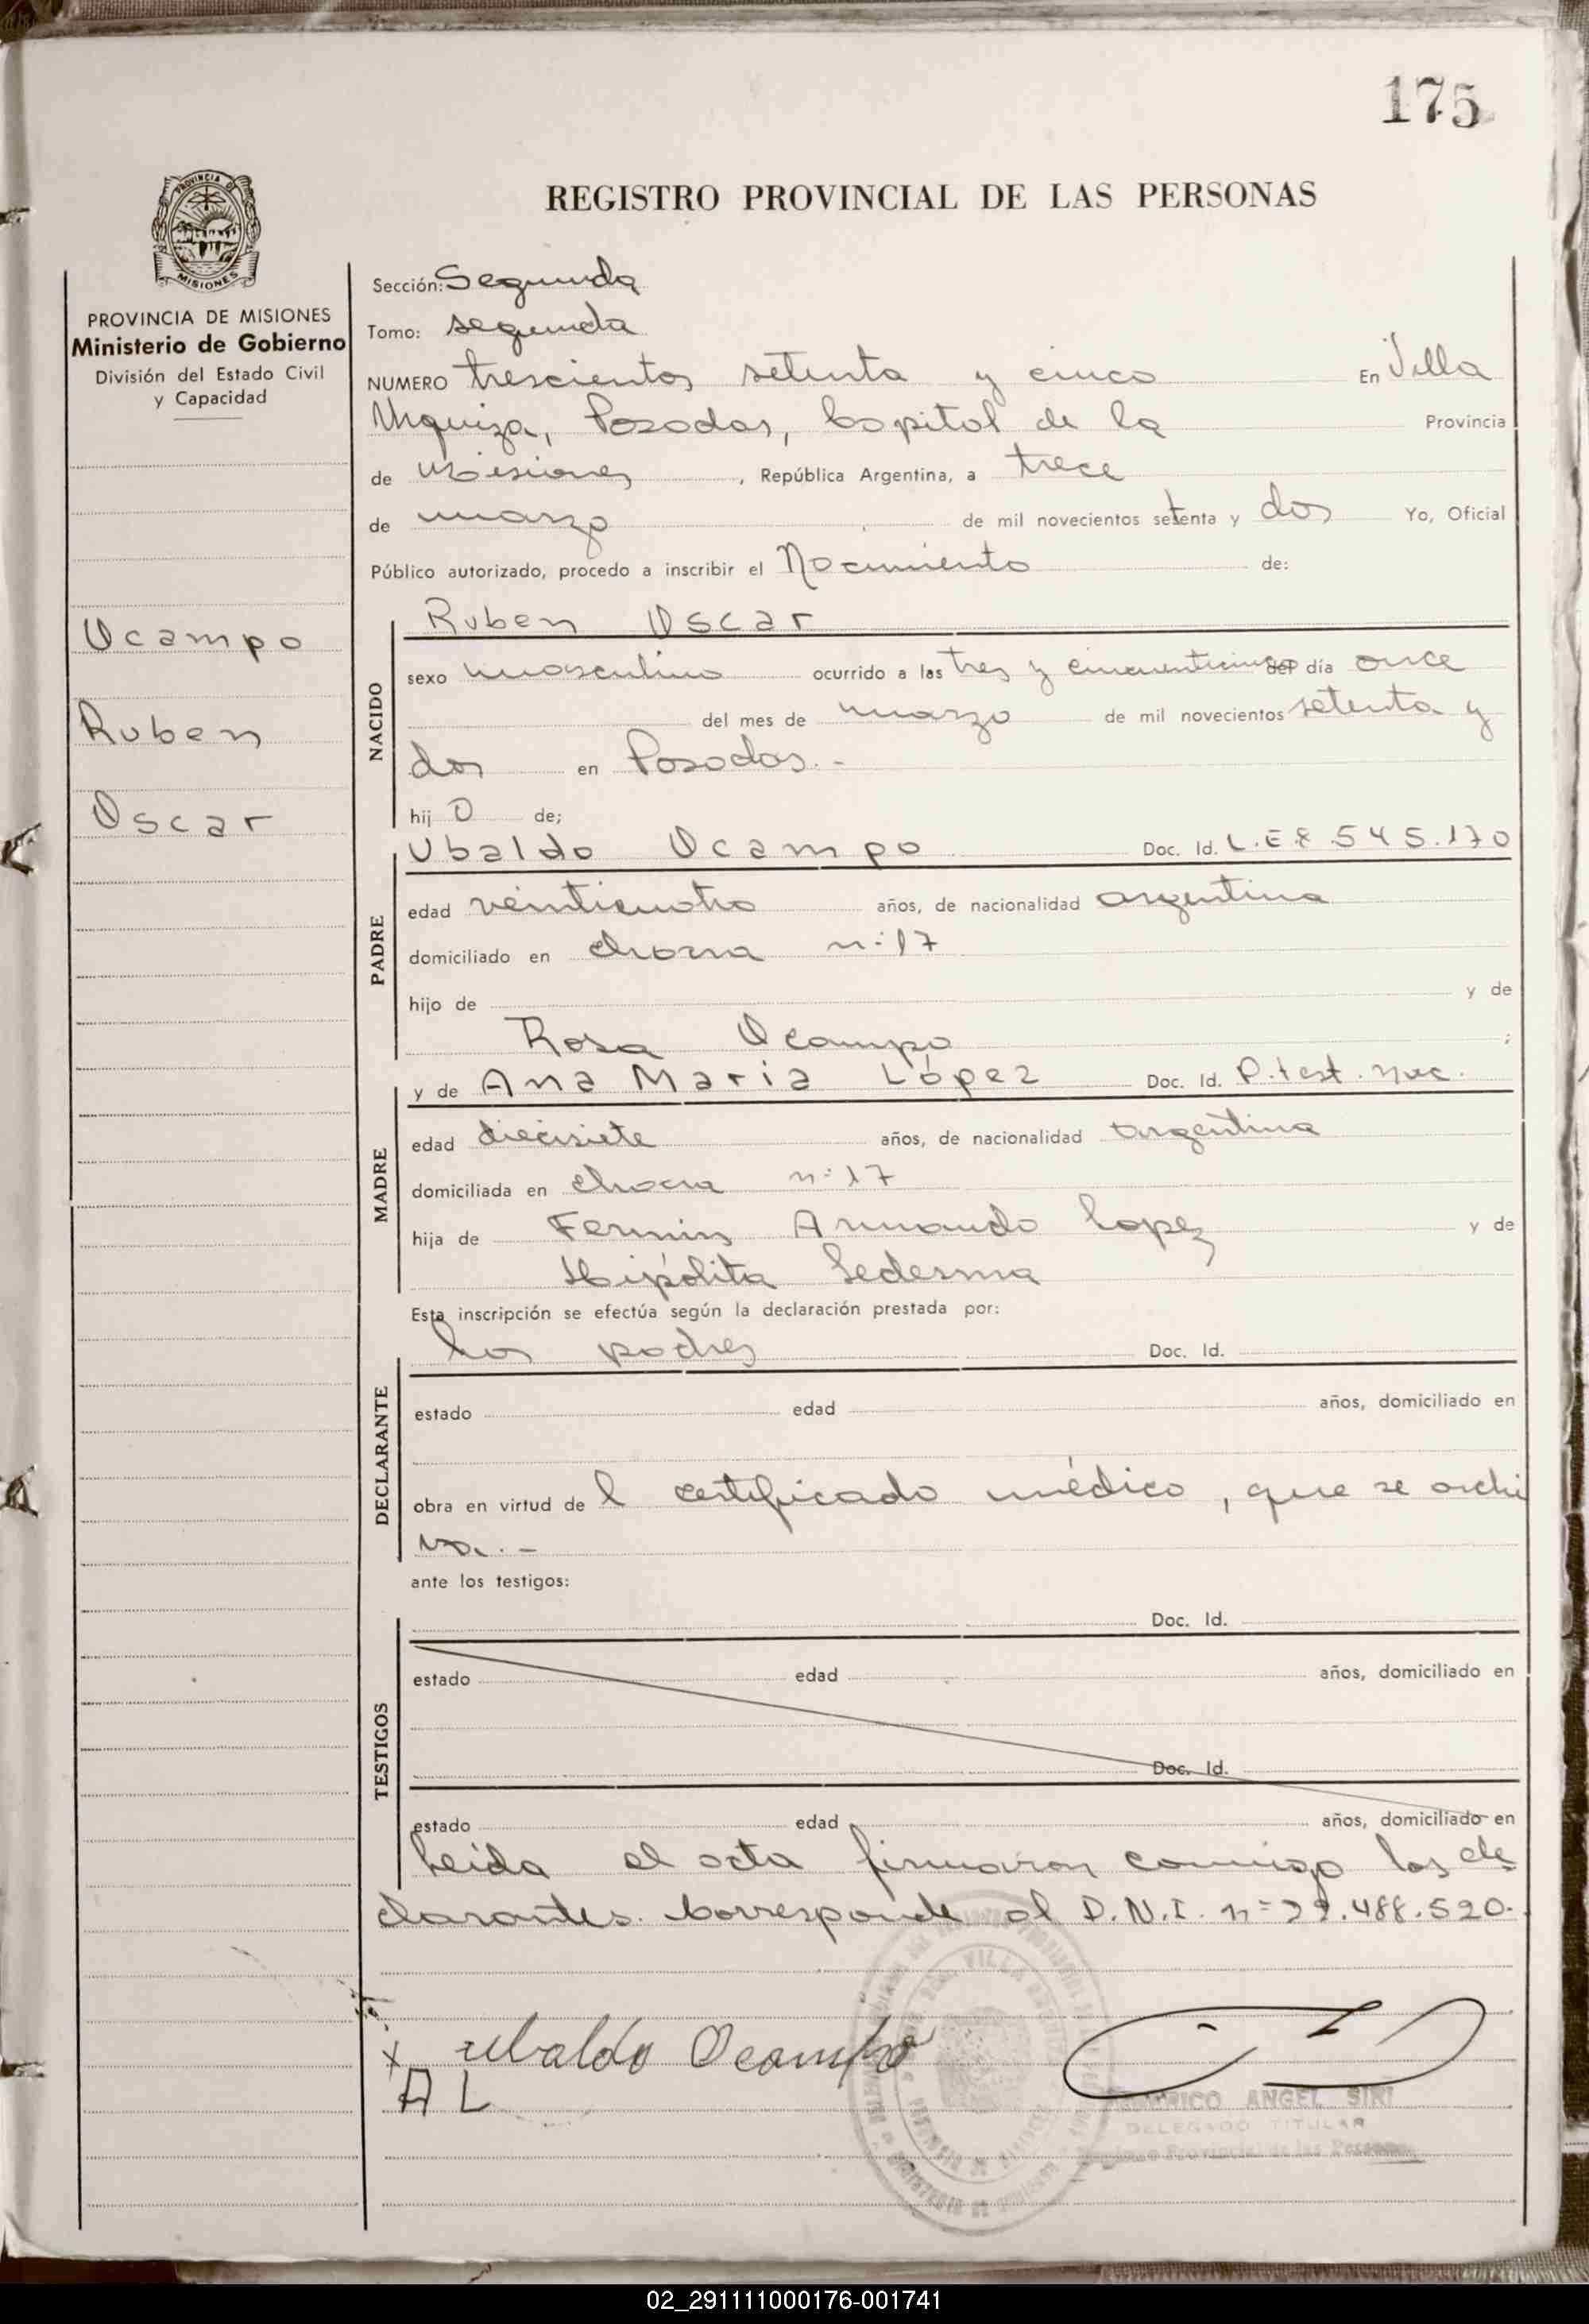 175
REGISTRO PROVINCIAL DE LAS PERSONAS
PROVINCIA DE
MISIONES
PROVINCIA DE MISIONES
Ministerio de Gobierno
División del Estado Civil
y Capacidad
Ocampo
Ruben
Oscar
Sección: Segunda
Tomo: segunda
NUMERO trescientos setenta y cinco En Villa
Urquiza, Posadas, Capital de la Provincia
de Misiones, República Argentina, a trece
de marzo de mil novecientos setenta y dos Yo, Oficial
Público autorizado, procedo a inscribir el Nacimiento de:
NACIDO
Ruben Oscar
sexo masculino ocurrido a las tres y cincuenticinco del día once
del mes de marzo de mil novecientos setenta y
dos en Posadas.-
hij o de;
PADRE
Ubaldo Ocampo Doc. Id. L.E 8.545.170
edad veinticuatro años, de nacionalidad argentina
domiciliado en chacra n:17
hijo de y de
Rosa Ocampo ;
MADRE
y de Ana Maria López Doc. Id. P. test. nac.
edad diecisiete años, de nacionalidad argentina
domiciliada en chacra n:17
hija de Fermin Armando Lopez y de
Hipólita Ledesma
Esta inscripción se efectúa según la declaración prestada por:
DECLARANTE
los padres Doc. Id.
estado edad años, domiciliado en
obra en virtud de l certificado médico, que se archi
va.-
ante los testigos:
TESTIGOS
Doc. Id.
estado edad años, domiciliado en
Doc. Id.
estado edad años, domiciliado en
Leida el acta firmaron conmigo los de
clarantes. Corresponde al D.N.I. n= .488.520.
x ubaldo Ocampo
A L
FEDERICO ANGEL SIRI
DELEGADO TITULAR
Registro Provincial de las Personas
02_291111000176-001741